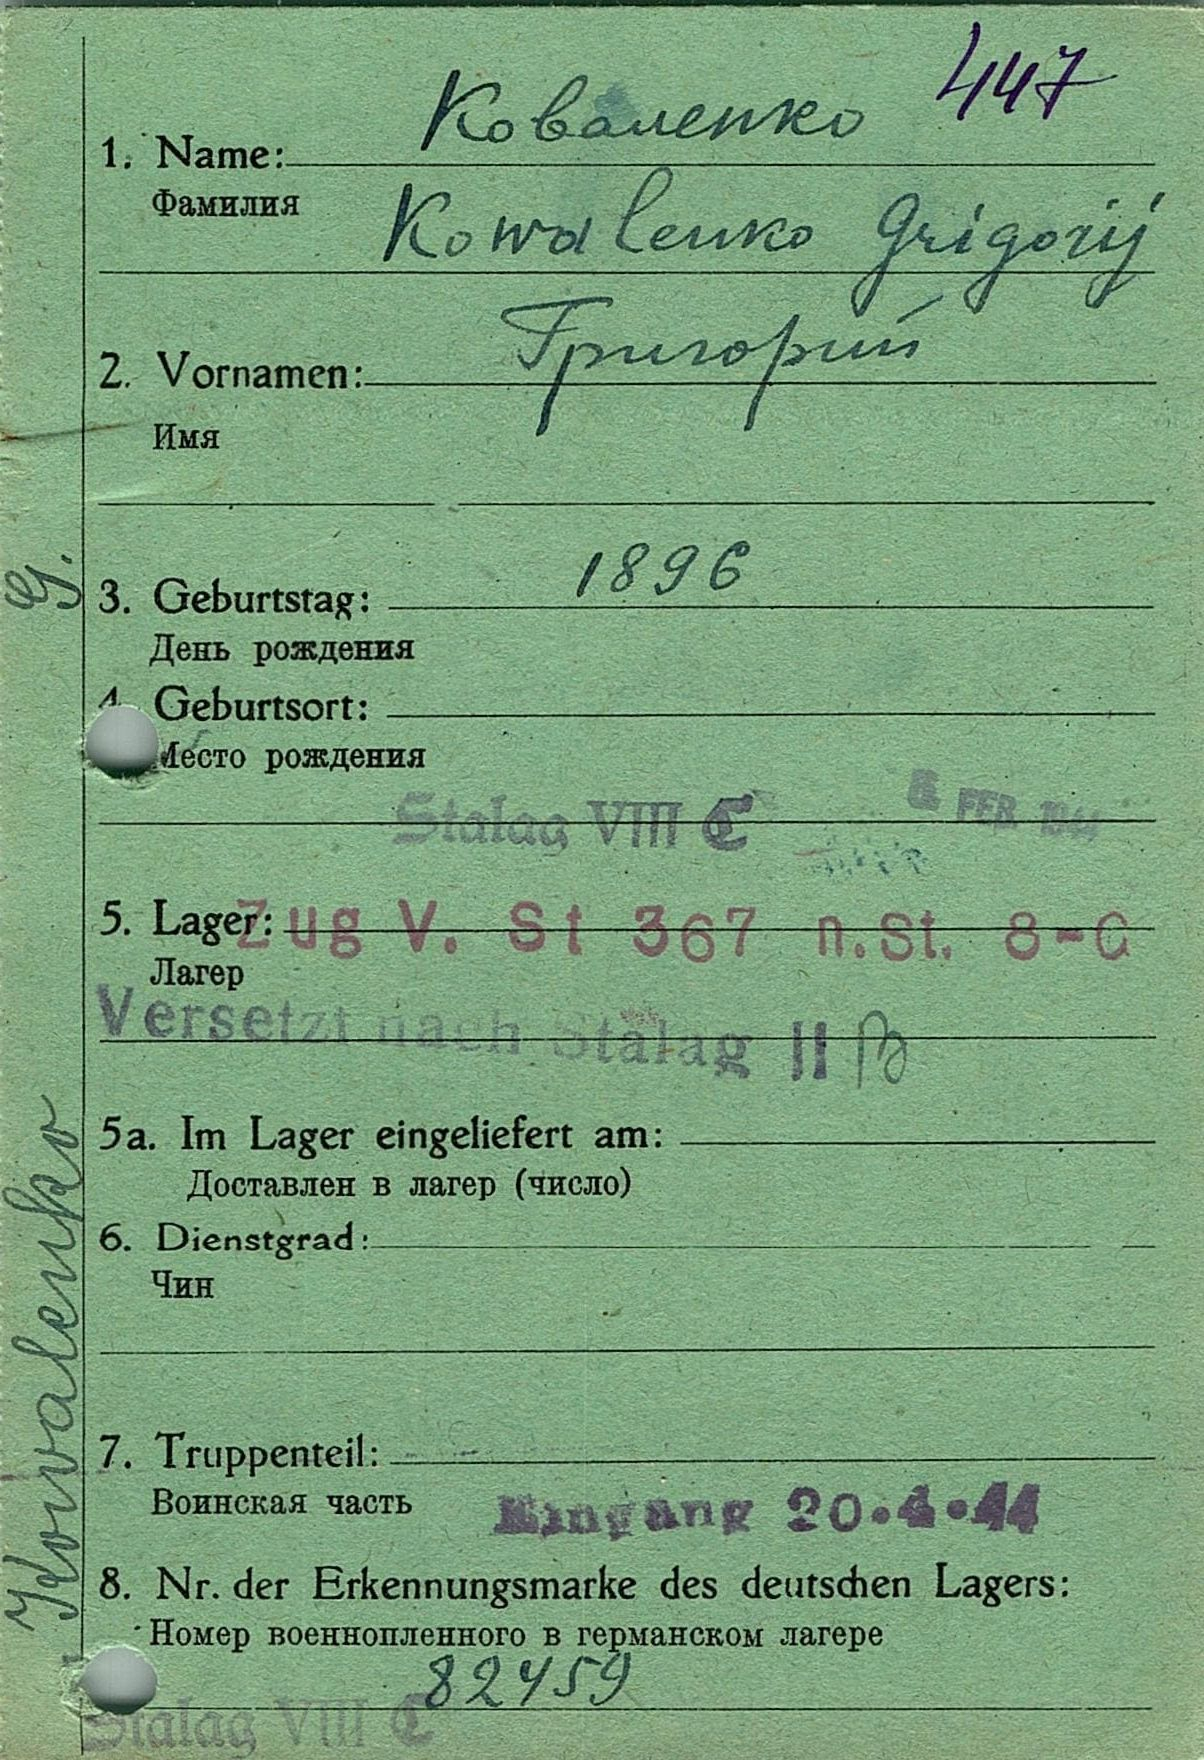 447
Коваленко
1. Name:
Фамилия
Kowalenko Grigorij
Григорий
2. Vornamen:
Имя
1896
3. Geburtstag:
День рождения
4. Geburtsort:
Место рождения
Stalag VIII C FEB. 1944
5. Lager: Zug V. St 367 n.St. 8-C
Лагер
Versetzt nach Stalag II B
5a. Im Lager eingeliefert am:
Доставлен в лагер (число)
6. Dienstgrad:
Чин
7. Truppenteil:
Воинская часть Eingang 20.4.44
8. Nr. der Erkennungsmarke des deutschen Lagers:
Номер военнопленного в германском лагере
82459
Stalag VIII C
Kowalenko G.